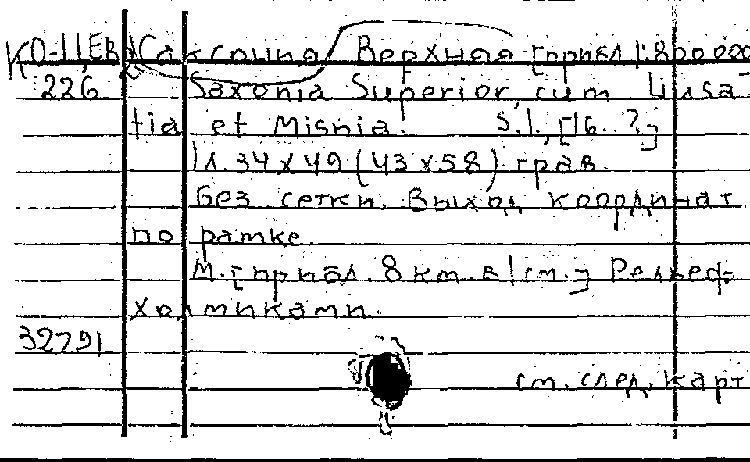 КО-ЦЕВ Саксония Верхняя [прибл 1:800 000
226 Saxonia Superior, cum Lusa-
tia et Misnia. S.l., [16. ?]
1 л. 34 x 49 (43 x 58) грав.
Без сетки. Выход координат
по рамке.
М. [прибл. 8 км. в 1 см.] Рельеф-
холмиками.
32791
см. след. карт